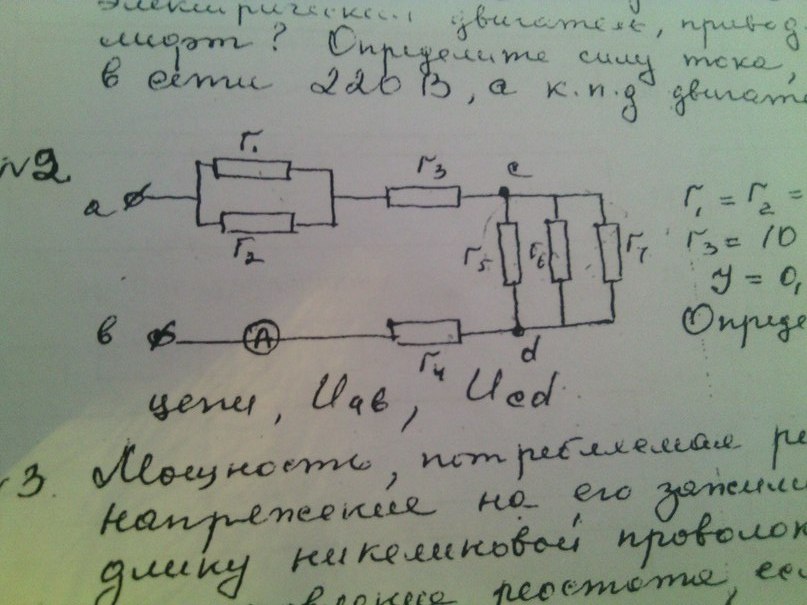 Электрический двигатель, привод
лифт? Определите силу тока,
в сети 220 В, а к.п.д двигате
№2.
r₁
r₂
r₃
c
a
r₅
r₆
r₇
r₁ = r₂ =
r₃ = 10
У = 0,
Опреде
в
A
r₄
d
цепи, Uав, Ucd
3. Мощность, потребляемая ре
напряжение на его зажим
длину никелиновой проволок
реостата, есл